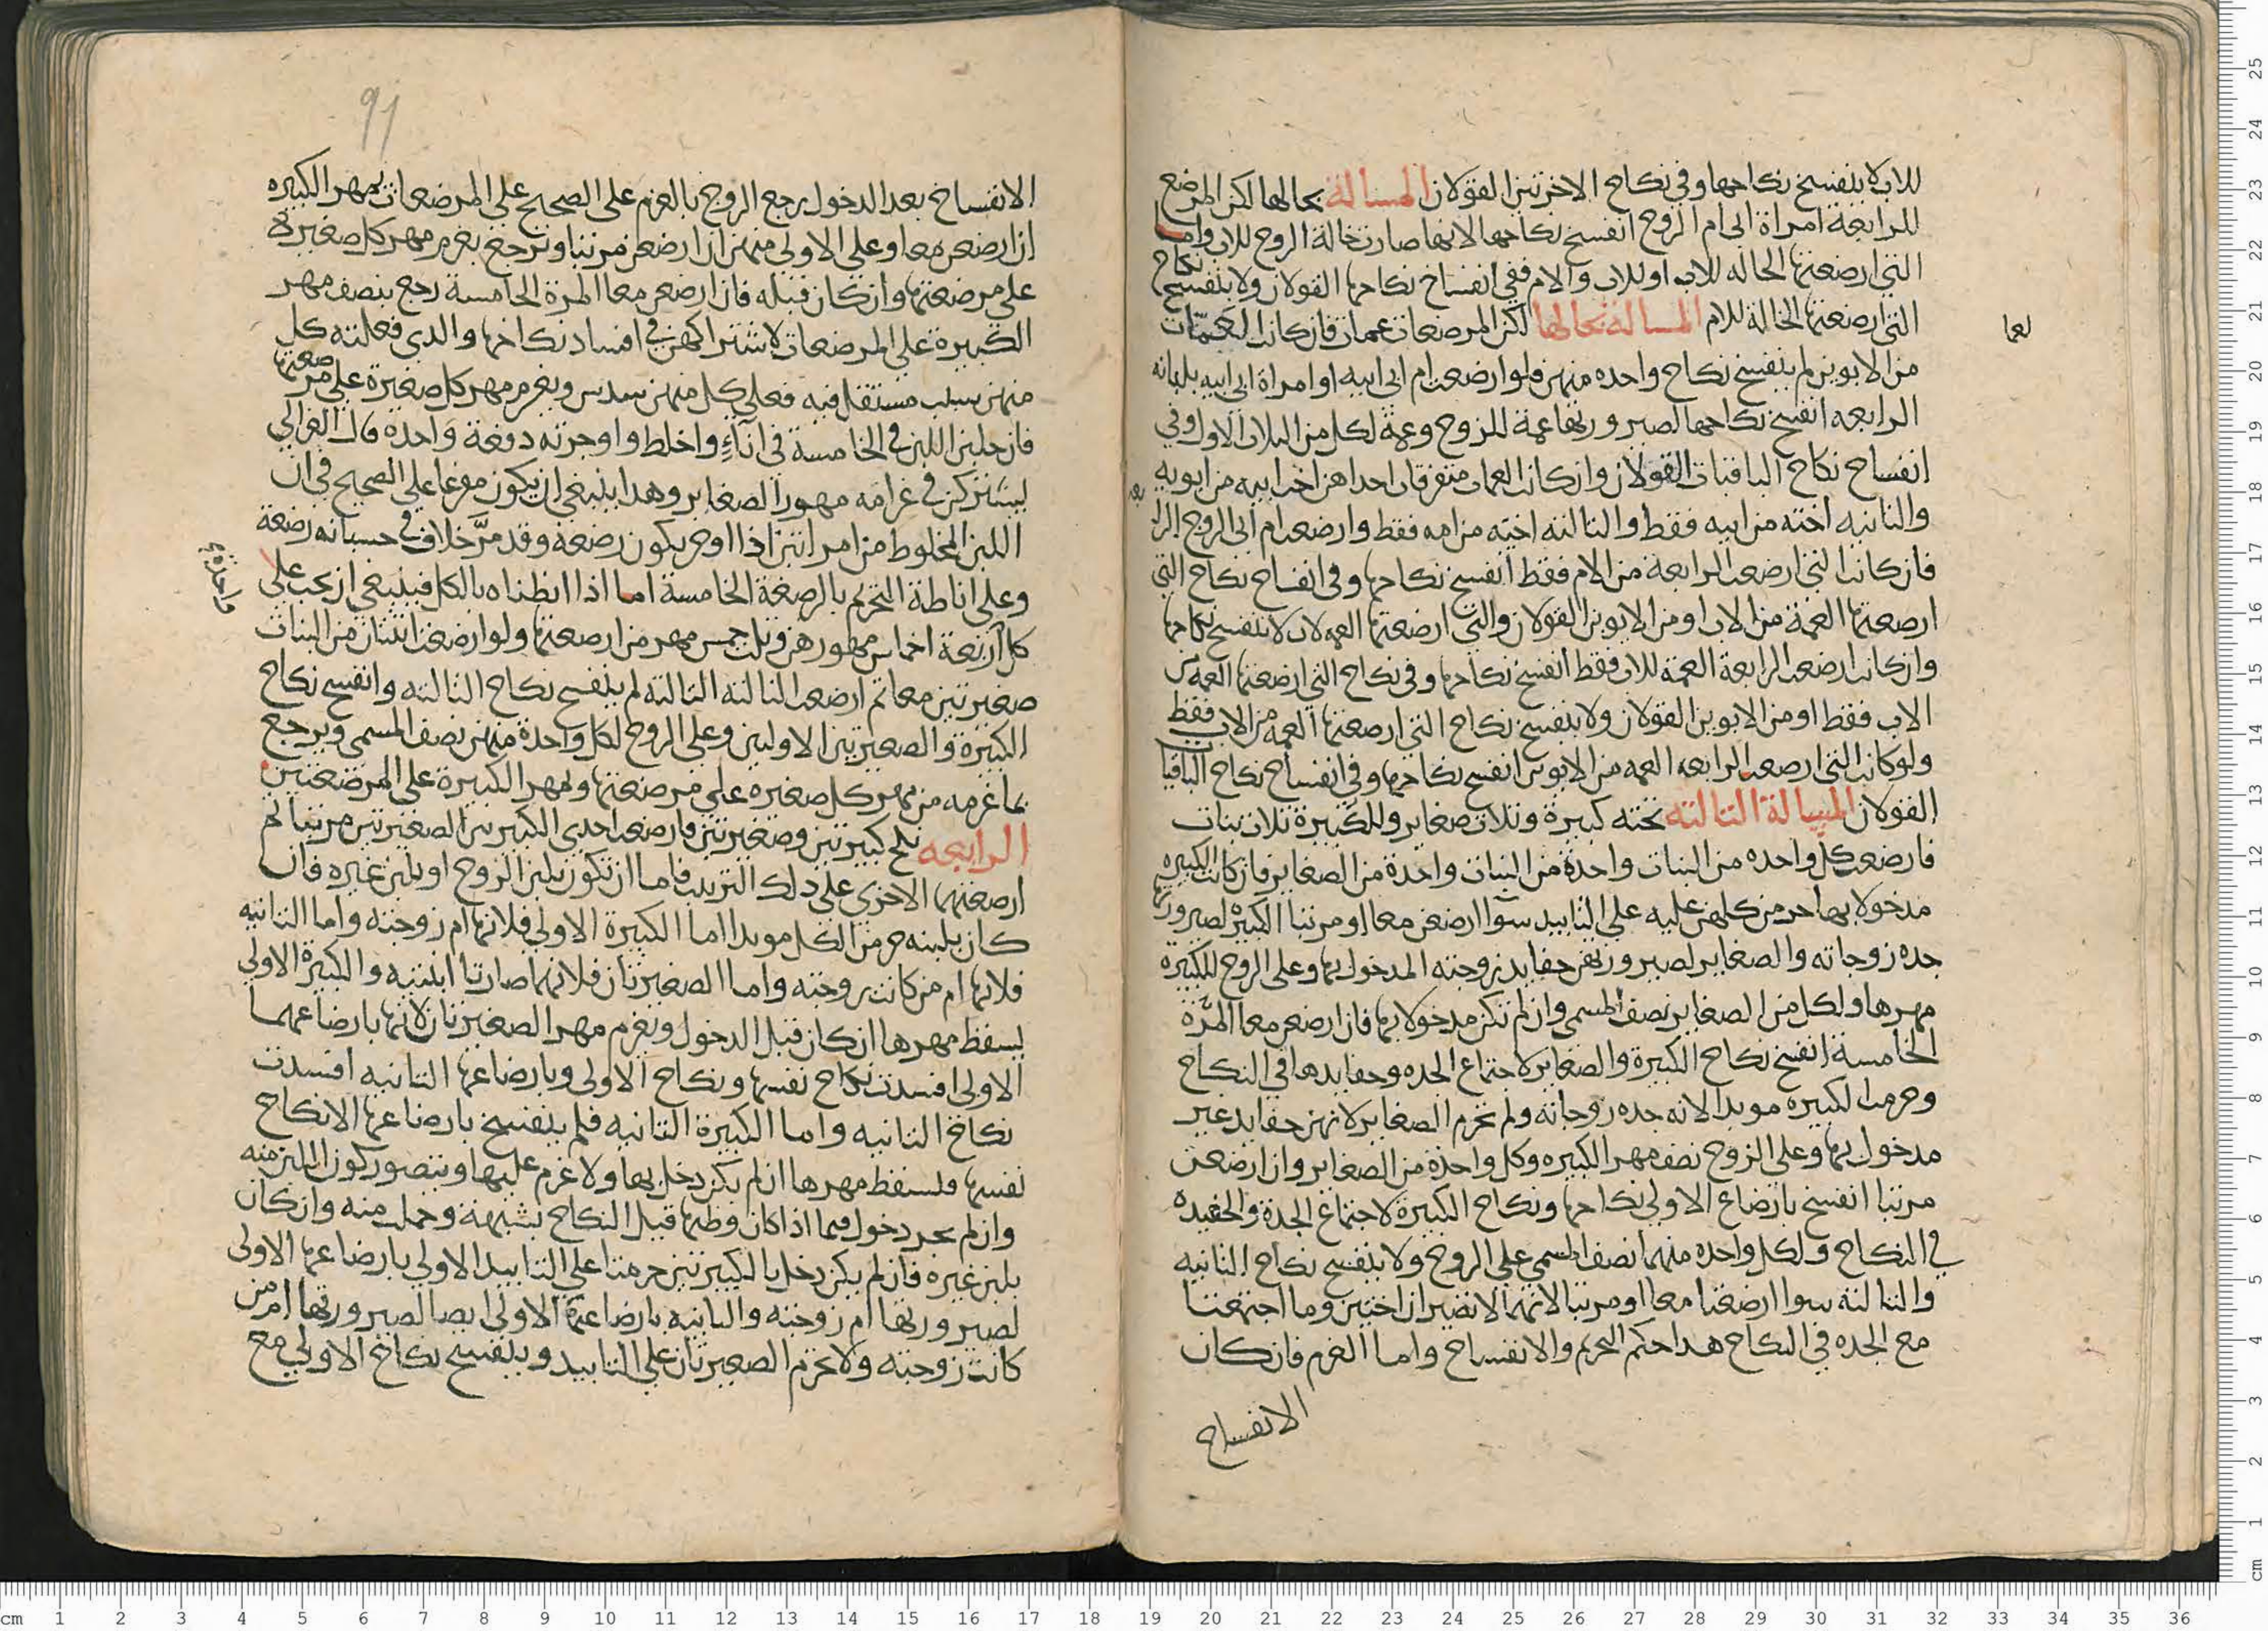 للاب لا ينفسخ نكاحها وفي نكاح الاخرتين القولان المسالة بحالها لكن المرضع
للرابعة امراة ابي ام الزوج انفسخ نكاحها لانها صارت خالة الزوج للاب واما
التي ارضعتها الخاله للاب او للاب والام ففي انفساخ نكاحها القولان ولا ينفسخ نكاح
التي ارضعتها الخالة للام المسالة بحالها لكن المرضعات عمات فان كانت العمات
من الابوين لم ينفسخ نكاح واحده منهن فلو ارضعت ام ابي ابيه او امراة ابي ابيه بلبانه
الرابعه انفسخ نكاحها لصيرورتها عمة للزوج وعمة لكل من الثلاث الاول وفي
انفساخ نكاح الباقيات القولان وان كانت العمات متفرقات احداهن اخت ابيه من ابويه
والثانيه اخته من ابيه فقط والثالثه اخته من امه فقط وارضعت ام ابي الزوج الرا
فان كانت التي ارضعت الرابعة من الام فقط انفسخ نكاحها وفي انفساخ نكاح التي
ارضعتها العمة من الاب او من الابوين القولان والتي ارضعتها العمه لاب لا ينفسخ نكاحها
وان كانت ارضعت الرابعة العمة للاب فقط انفسخ نكاحها وفي نكاح التي ارضعتها العمه من
الاب فقط او من الابوين القولان ولا ينفسخ نكاح التي ارضعتها العمه من الاب فقط
ولو كانت التي ارضعت الرابعه العمه من الابوين انفسخ نكاحها وفي انفساخ نكاح الباقيات
القولان المسالة الثالثه تحته كبيرة وثلاث صغاير وللكبيرة ثلاث بنات
فارضعت كل واحده من البنات واحدة من الصغاير فان كانت الكبيره
مدخولا بها حر من كلهن عليه على التابيد سوا ارضعن معا او مرتبا الكبيره لصيرورتها
جده زوجاته والصغاير لصيرورتهن حفايد زوجته المدخول بها وعلى الزوج للكبيرة
مهرها ولكل من الصغاير نصف المسمى وان لم تكن مدخولا بها فان ارضعن معا المرة
الخامسة انفسخ نكاح الكبيرة والصغاير لاجتماع الجده وحفايدها في النكاح
وحرمت الكبيره موبدا لانه جده زوجاته ولم تحرم الصغاير لانهن حفايد غير
مدخول بها وعلى الزوج نصف مهر الكبيره وكل واحدة من الصغاير وان ارضعن
مرتبا انفسخ بارضاع الاولى نكاحها ونكاح الكبيرة لاجتماع الجدة والحفيده
في النكاح ولكل واحده منهما نصف المسمى على الزوج ولا ينفسخ نكاح الثانيه
والثالثه سوا ارضعتا معا او مرتبا لانهما لا تصيران اختين وما اجتمعتا
مع الجده في النكاح هذا حكم التحريم والانفساخ واما الغرم فان كان
الانفساخ
91
الانفساخ بعد الدخول يرجع الزوج بالغرم على الصحيح على المرضعات بمهر الكبيره
ان ارضعن معا وعلى الاولى منهن ان ارضعن مرتبا ونرجع بغرم مهر كل صغيرة
على مرضعتها وان كان قبله فان ارضعن معا المرة الخامسة رجع بنصف مهر
الكبيرة على المرضعات لاشتراكهن في افساد نكاحها والذي فعلته كل
منهن سبب مستقل فيه فعلى كل منهن سدس ويغرم مهر كل صغيرة على مرضعتها
فان حلبن اللبن في الخامسة في اناء واخلط واوجرته دفعة واحدة قال الغزالي
يشتركن في غرامه مهور الصغاير وهذا ينبغي ان يكون مفرعا على الصحيح في ان
اللبن المخلوط من امراتين اذا اوجر يكون رضعة وقد مر خلاف في حسبانه رضعة
وعلى اناطة التحريم بالرضعة الخامسة اما اذا انطناه بالكل فينبغي ان يجب على
كل اربعة اخماس مهورهن وثلث خمس مهر من ارضعتها ولو ارضعت اثنتان من البنات
صغيرتين معا ثم ارضعت الثالثه الثالثه لم ينفسخ نكاح الثالثه وانفسخ نكاح
الكبيرة والصغيرتين الاوليين وعلى الزوج لكل واحدة منهن نصف المسمى ويرجع
بما غرمه من مهر كل صغيره على مرضعتها ولمهر الكبيرة على المرضعتين
الرابعه نكح كبيرتين وصغيرتين فارضعت احدى الكبيرتين الصغيرتين مرتبا ثم
ارضعتهما الاخرى على ذلك الترتيب فاما ان تكون بلبن الزوج او بلبن غيره فان
كان بلبنه حرمن الكل موبدا اما الكبيرة الاولى فلانها ام زوجته واما الثانيه
فلانها ام من كانت زوجته واما الصغيرتان فلانهما صارتا ابنتيه والكبيرة الاولى
يسقط مهرها ان كان قبل الدخول ويغرم مهر الصغيرتان لانها بارضاعهما
الاولى افسدت نكاح نفسها ونكاح الاولى وبارضاعها الثانيه افسدت
نكاح الثانيه واما الكبيرة الثانيه فلم ينفسخ بارضاعها الا نكاح
نفسها فلسقط مهرها ان لم يكن دخل بها ولا غرم عليها ويتصور كون اللبن منه
وان لم يجر دخول فيما اذا كان وطيها قبل النكاح بشبهة وحملت منه وان كان
بلبن غيره فان لم يكن دخل بالكبيرتين حرمتا على التابيد الاولى بارضاعها الاولى
لصيرورتها ام زوجته والثانيه بارضاعها الاولى ايضا لصيرورتها ام من
كانت زوجته ولا تحرم الصغيرتان على التابيد وينفسخ نكاح الاولى مع